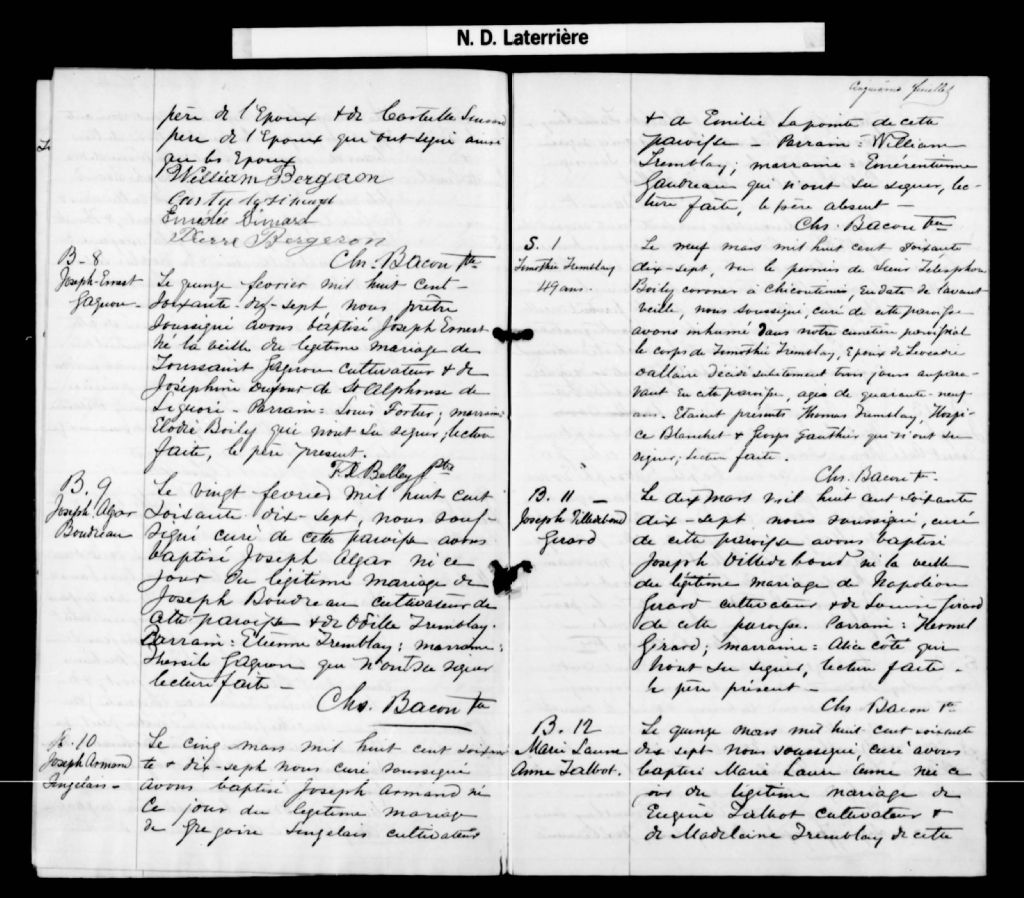 N. D. Laterrière
père de l'Epoux & de Castule Simard
père de l'Epouse qui ont signé ainsi
que les Epoux
William Bergeron
Simard
Emédée Simard
Pierre Bergeron
Chs. Bacon Ptre
B-8
Joseph-Ernest
Gagnon-
Le quinze fevrier mil huit cent-
soixante-dix-sept nous prêtre
soussigné avons baptisé Joseph Ernest
né la veille du legitime mariage de
Toussaint Gagnon cultivateur & de
Joséphine Dufour de St Alphonse de
Liguori - Parrain: Louis Fortier; marraine
Elodie Boily qui n'ont su signer; lecture
faite, le père present.
F.X. Belley Ptre
B. 9
Joseph Algar
Boudreau
Le vingt fevrier mil huit cent
soixante-dix-sept, nous sous-
signé curé de cette paroisse avons
baptisé Joseph Algar né ce
jour du légitime mariage de
Joseph Boudreau cultivateur de
cette paroisse & de Odille Tremblay.
Parrain: Etienne Tremblay; marraine:
Thersile Gagnon qui n'ont su signer
lecture faite -
Chs. Bacon Ptre
B. 10
Joseph Armand
Singelais-
Le cinq mars mil huit cent soixan
te & dix-sept nous curé soussigné
avons baptisé Joseph Armand né
ce jour du legitime mariage
de Gregoire Singelais cultivateur
Cinquième feuillet
& de Emilie Lapointe de cette
paroisse - Parrain: William
Tremblay; marraine: Emérentienne
Gaudreau qui n'ont su signer, lec-
ture faite, le père absent -
Chs. Bacon Ptre
S. 1
Timothée Tremblay
49 ans.
Le neuf mars mil huit cent soixante
dix-sept, vu le permis de Sieur Telesphore
Boily coroner à Chicoutimi, en date de l'avant
veille, nous soussigné, curé de cette paroisse
avons inhumé dans notre cimetière paroissial
le corps de Timothée Tremblay, Epoux de Leocadie
Dallaire décédé subitement trois jours aupara-
vant en cette paroisse, agé de quarante-neuf
ans. Etaient présents Thomas Tremblay, Hospi-
ce Blanchet & George Gauthier qui n'ont su
signer; lecture faite.
Chs. Bacon Ptre
B. 11 -
Joseph Villedebond
Gerard
Le dix mars mil huit cent soixante
dix-sept nous soussigné, curé
de cette paroisse avons baptisé
Joseph Villedebond né la veille
du légitime mariage de Napoléon
Gerard cultivateur & de Louise Girard
de cette paroisse. Parrain: Hermel
Gérard; marraine: Alice Côté qui
n'ont su signer, lecture faite.
le père présent -
Chs Bacon Ptre
B. 12
Marie Laure
Anne Talbot.
Le quinze mars mil huit cent soixante
dix sept nous soussigné curé avons
baptisé Marie Laure Anne née ce
jour du legitime mariage de
Eugène Talbot cultivateur &
de Madeleine Tremblay de cette